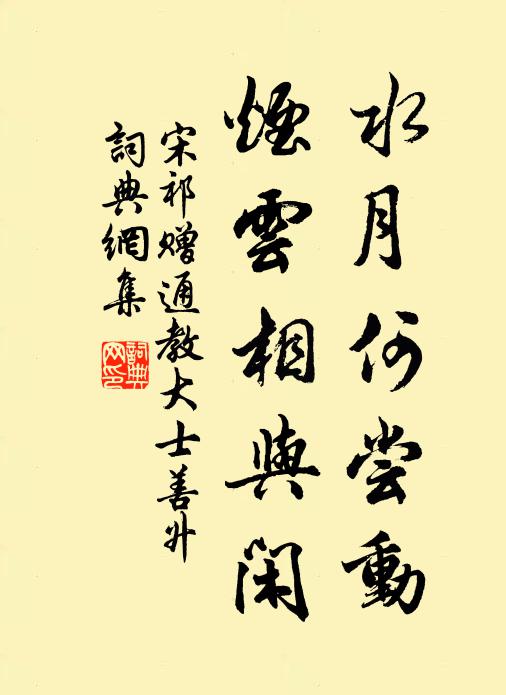 水月何尝動
煙雲相與閑
宋祁赠通教大士善升
詞典網集
詞典网印